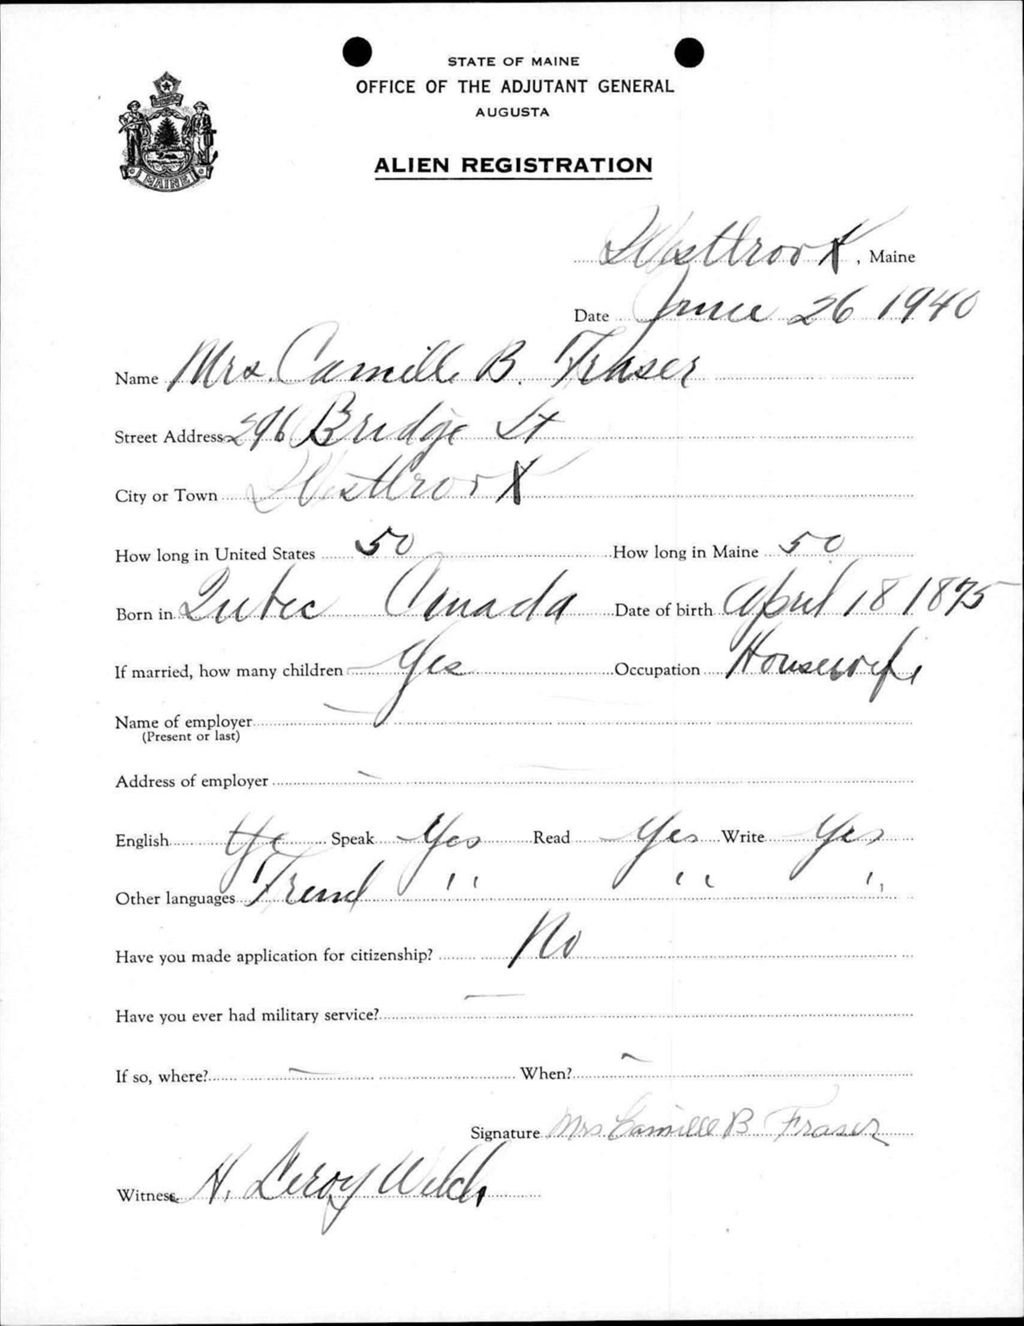 STATE OF MAINE
OFFICE OF THE ADJUTANT GENERAL
AUGUSTA
ALIEN REGISTRATION
MAINE
Westbrook, Maine
Date June 26 1940
Name Mrs. Camille B. Fraser
Street Address 296 Bridge St
City or Town Westbrook
How long in United States 50 How long in Maine 50
Born in Quebec Canada Date of birth April 18 1875
If married, how many children Yes Occupation Housewife
Name of employer —
(Present or last)
Address of employer —
English Yes Speak Yes Read Yes Write Yes
Other languages French " " "
Have you made application for citizenship? No
Have you ever had military service? —
If so, where? — When? —
Signature Mrs Camille B Fraser
Witness H. Leroy Welch